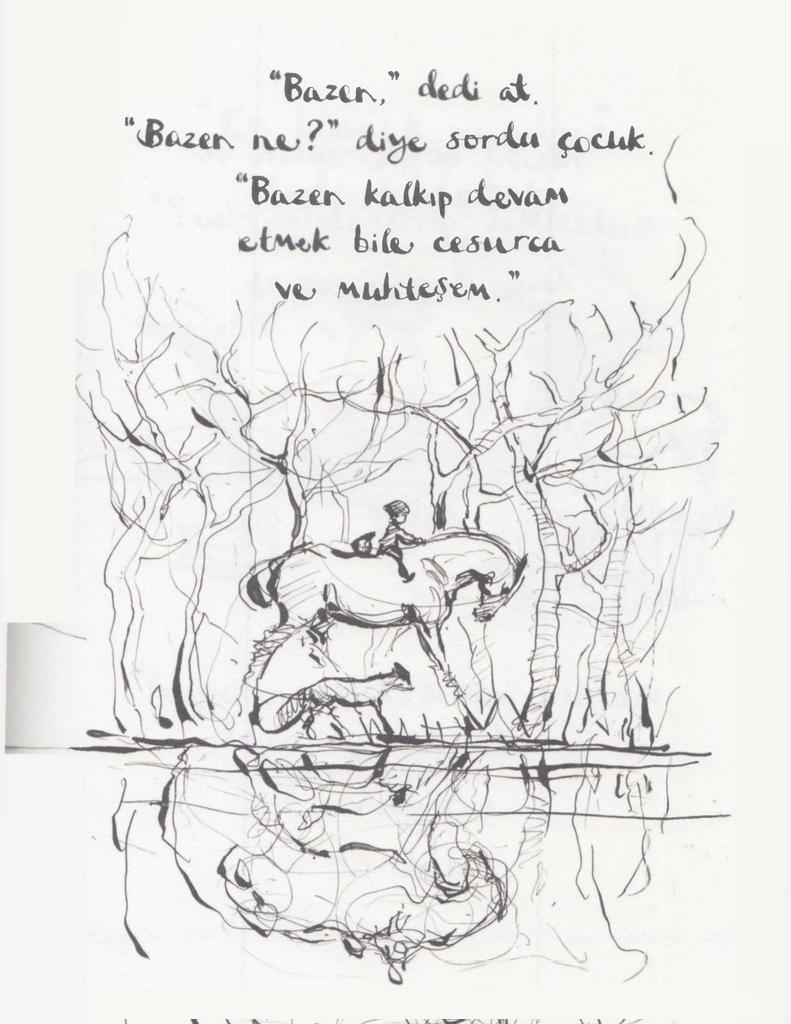 “Bazen,” dedi at.
“Bazen ne?” diye sordu çocuk.
“Bazen kalkıp devam
etmek bile cesurca
ve muhteşem.”